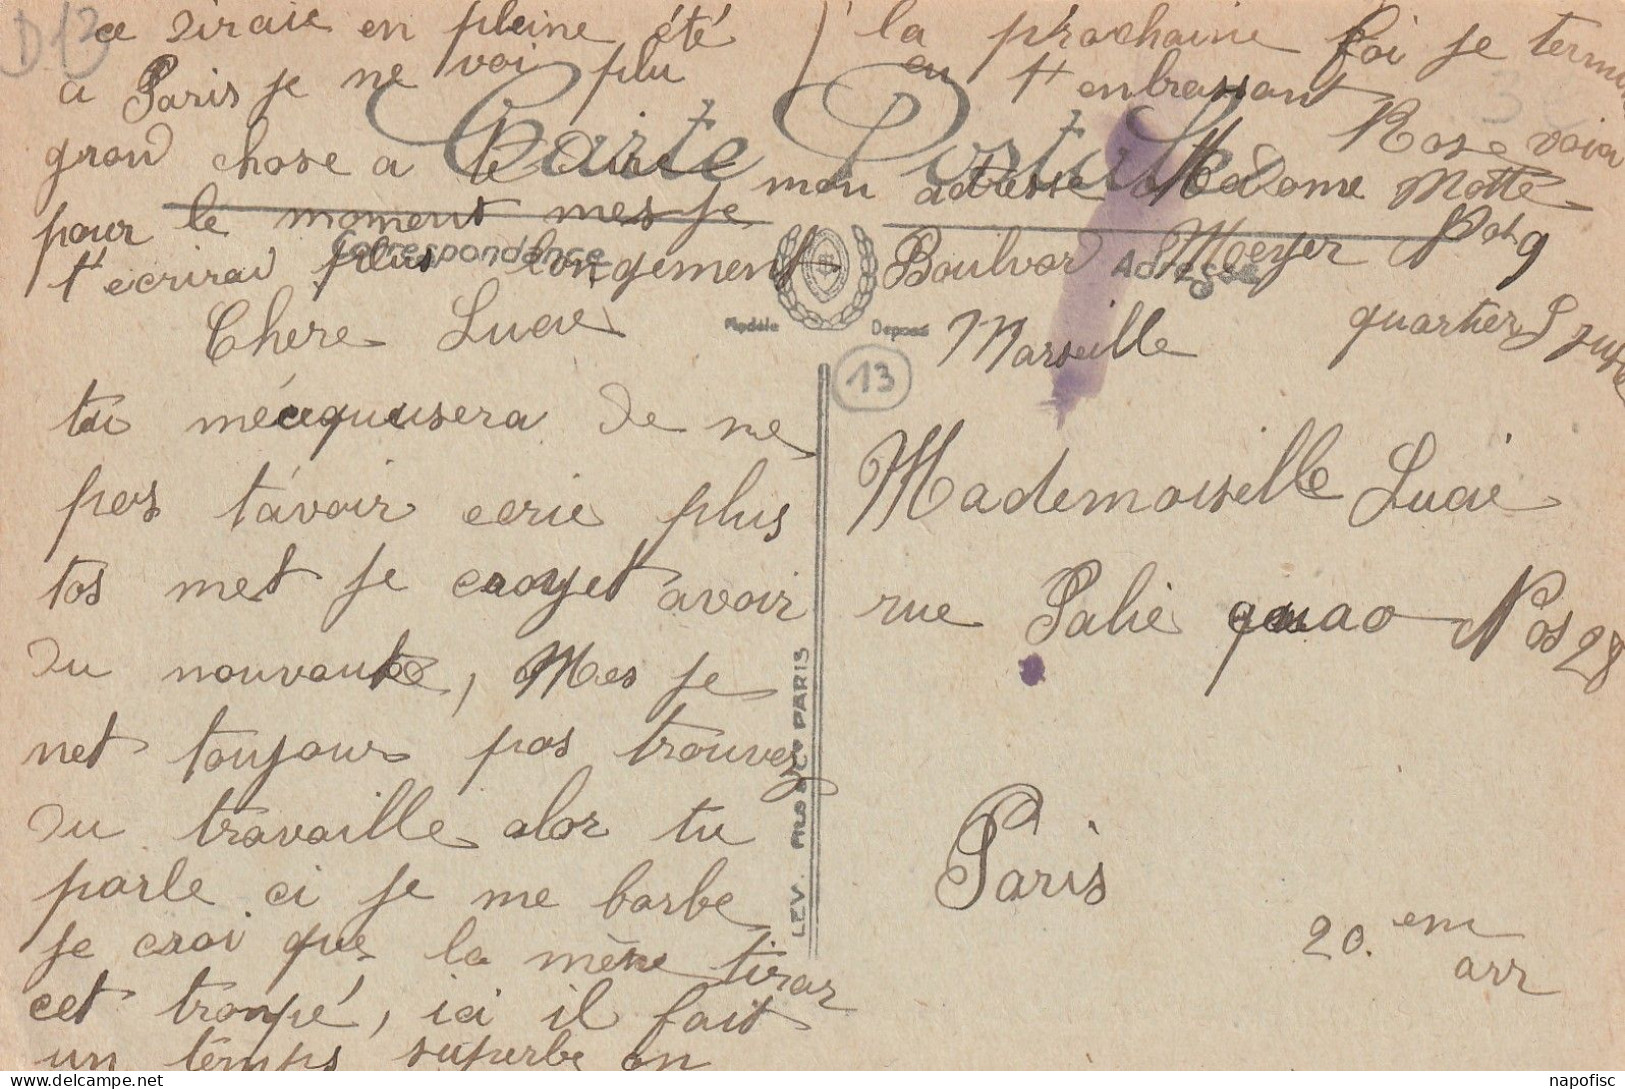 Chere Lucie
tu mécquusera de ne
pas tavoir ecrie plus
tos met je croyet avoir
du nouvautés, Mes je
net toujour pas trouvez
du travaille alor tu
parle ci je me barbe
je croi que la mère tirar
cet trompé, ici il fait
un temps superbe on
ce siraie en pleine été
a Paris je ne voi plu
grand chose a te dire
pour le moment mes je
t'ecrirai plus longement
la prochaine foi je termine
en t'enbrassant
Rose voia
mon adresse Madame Motte
Boulvar Meyer Nos 9
Marseille quartier S Juste
Carte Postale
Correspondance
Adresse
Modèle Déposé
D13
13
3
Mademoiselle Lucie
rue Palie quao Nos 28
Paris
20. em
arr
LEV. FILS & Cie PARIS
napofisc